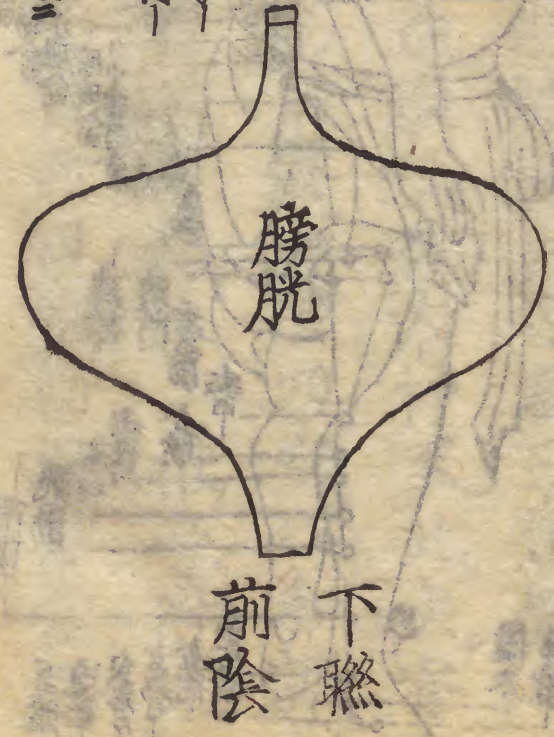 膀胱
下聮
前陰